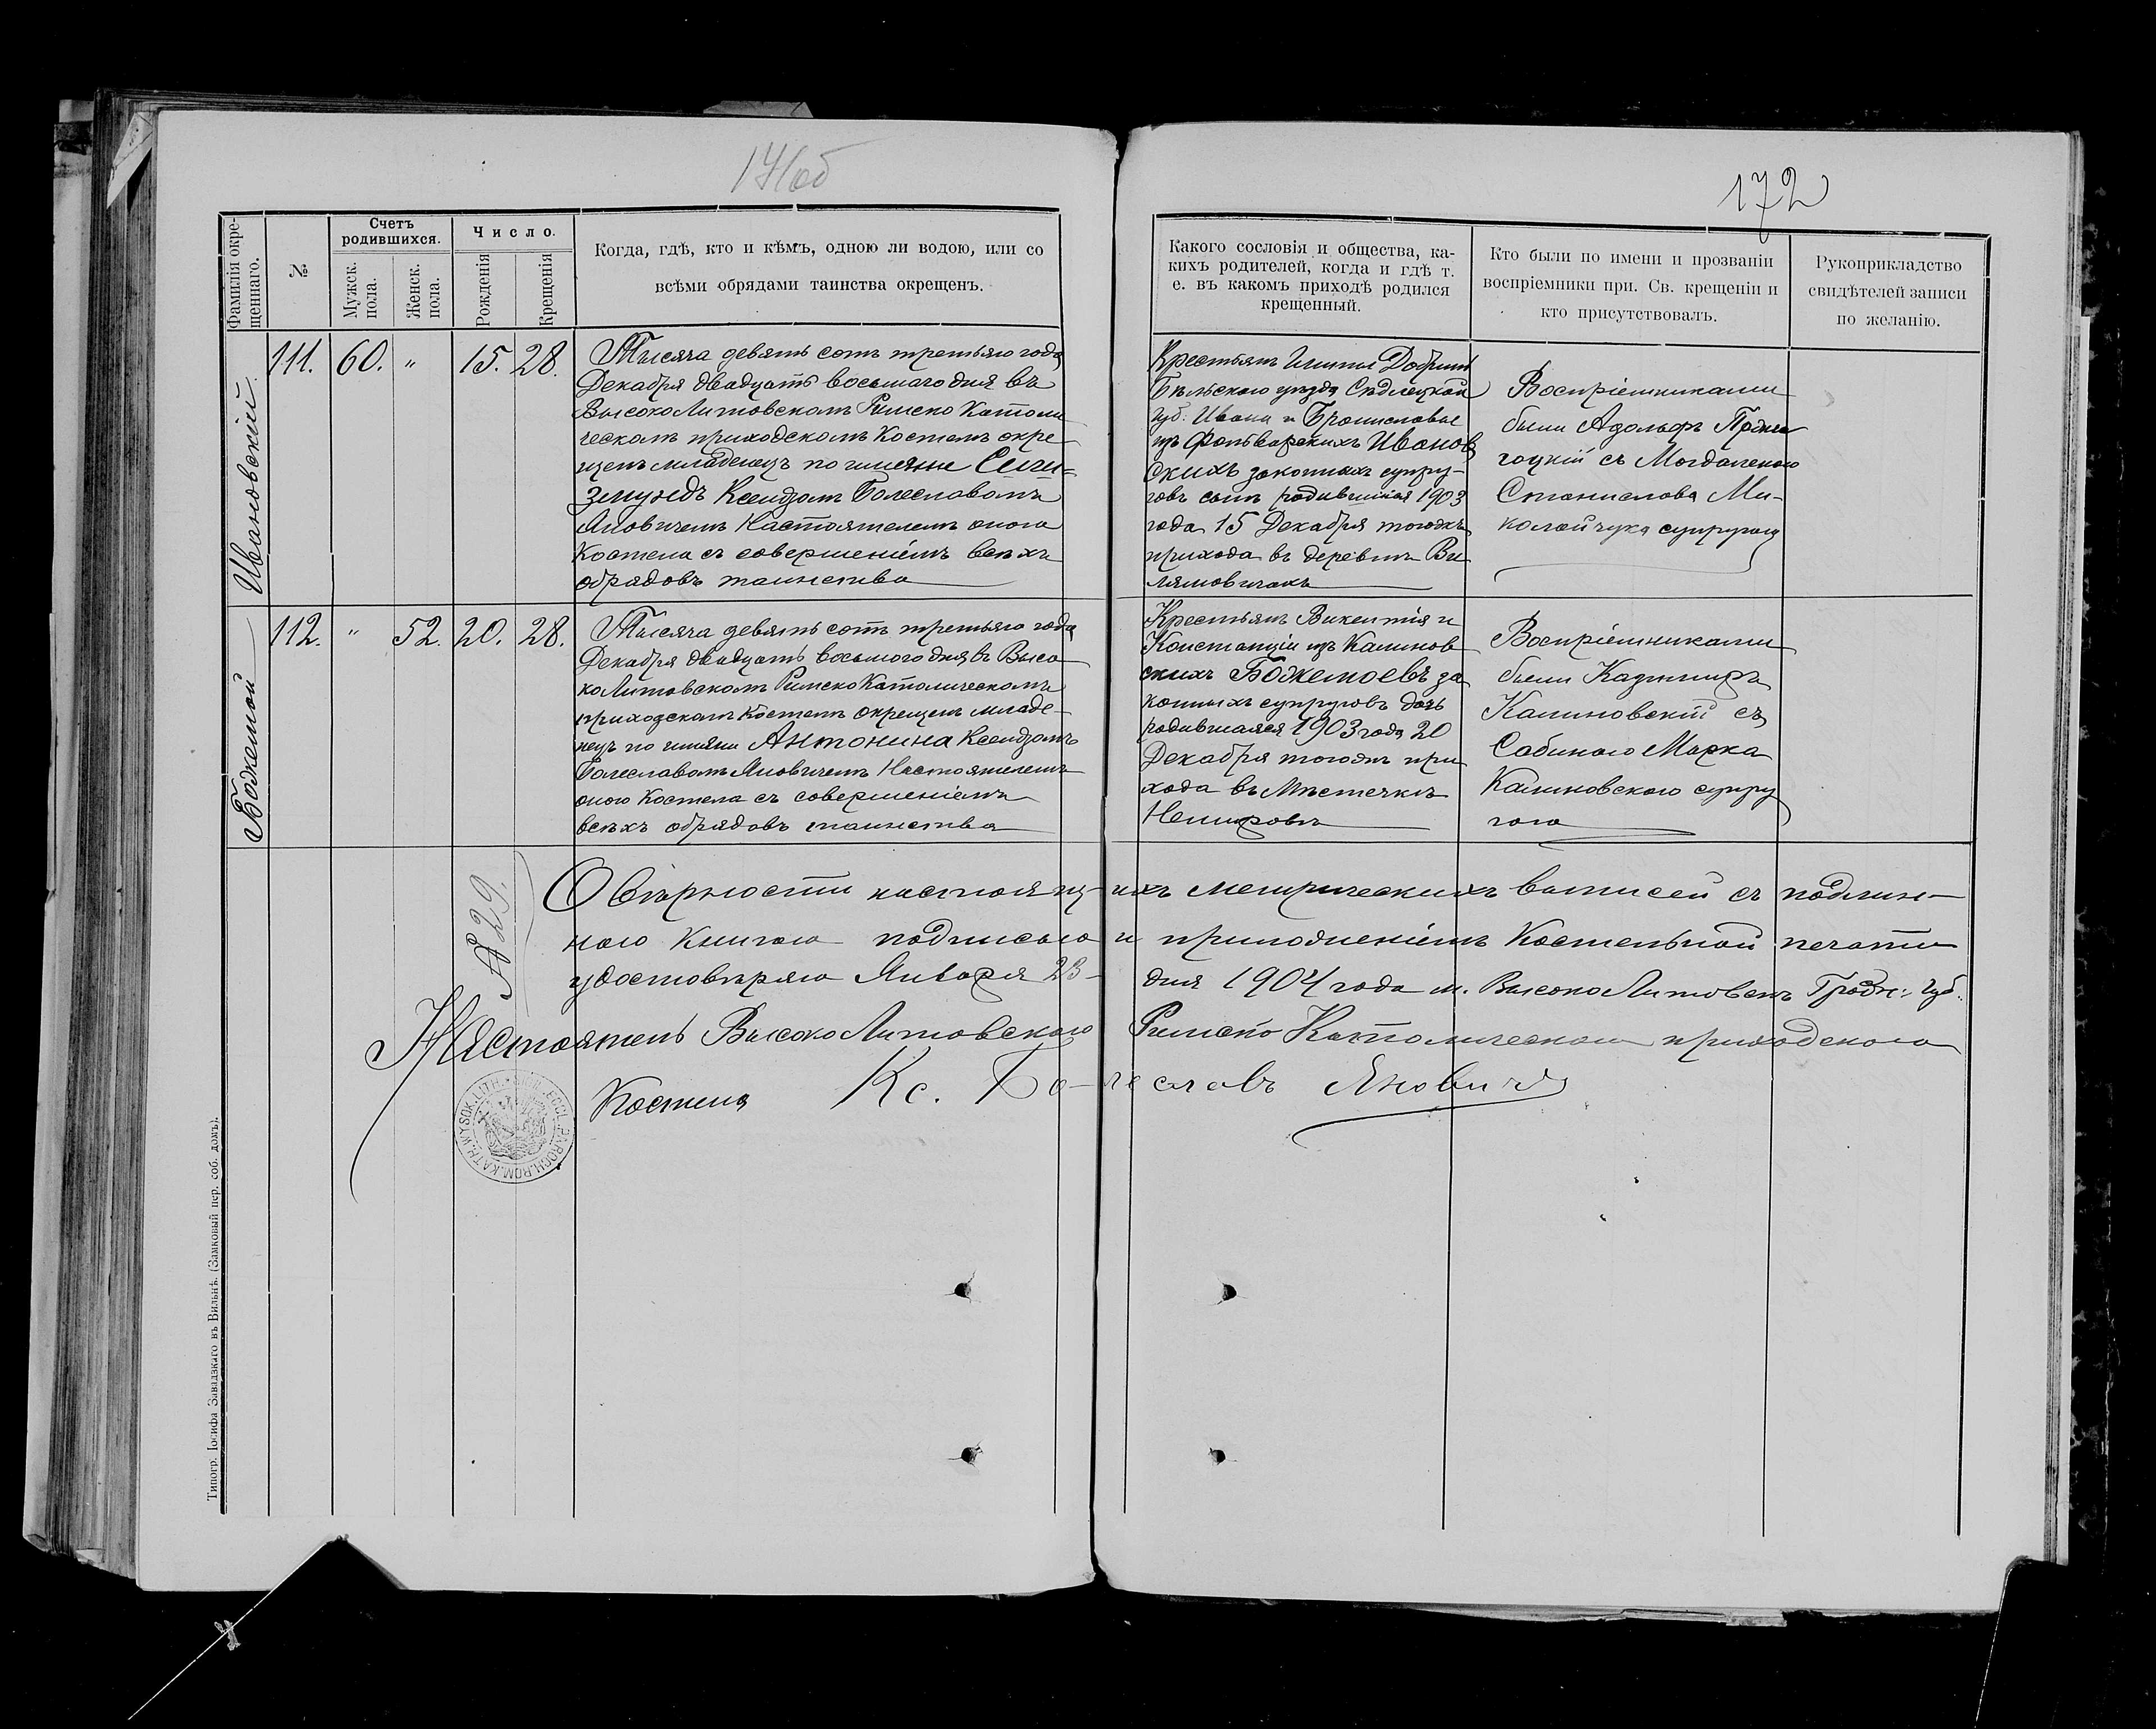 171об
172
Фамилія окре-
щеннаго.
№
Счетъ
родившихся.
Мужск.
пола.
Женск.
пола.
Число.
Рожденія
Крещенія
Когда, гдѣ, кто и кѣмъ, одною ли водою, или со
всѣми обрядами таинства окрещенъ.
Какого сословія и общества, ка-
кихъ родителей, когда и гдѣ т.
е. въ какомъ приходѣ родился
крещенный.
Кто были по имени и прозваніи
воспріемники при. Св. крещеніи и
кто присутствовалъ.
Рукоприкладство
свидѣтелей записи
по желанію.
Ивановскій
111. 60. " 15. 28.
Тысяча девятьсотъ третьяго года
Декабря двадцать восьмаго дня въ
Высоко Литовскомъ Римско Католи
ческомъ приходскомъ Костелѣ окре
щенъ младенецъ по имени Сиги=
змундъ Ксендзомъ Болеславомъ
Яновичемъ Настоятелемъ онаго
Костела съ совершеніемъ всѣхъ
обрядовъ таинства
Крестьянъ Гмины Добрынь
Бѣльскаго уѣзда Сѣдлецкой
губ: Ивана и Брониславы
изъ Фольварскихъ Иванов
скихъ законныхъ супру-
говъ сынъ родившійся 1903
года 15 Декабря тогожъ
прихода въ деревнѣ Ви
лямовичахъ
Воспріемниками
были Адольфъ
съ Магдаленою
Станислава Ми-
колайчука супругою
Божемой
112. " 52. 20. 28.
Тысяча девятьсотъ третьяго года
Декабря двадцать восьмого дня въ Высо
ко Литовскомъ Римско Католическомъ
приходскомъ Костелѣ окрещенъ младе-
нецъ по имени Антонина Ксендзомъ
Болеславомъ Яновичемъ Настоятелемъ
оного Костела съ совершеніемъ
всѣхъ обрядовъ таинства
Крестьянъ Викентія и
Констанціи изъ Калинов
скихъ Божемоевъ за
конныхъ супруговъ дочь
родившаяся 1903 года 20
Декабря тогожъ при
хода въ Мѣстечкѣ
Немировѣ
Воспріемниками
были Казимиръ
Калиновскій съ
Сабиною Марка
Калиновского супру
гою
№ 29.
О вѣрности настоящихъ метрическихъ выписей съ подлин-
ною Книгою подписью и приложеніемъ Костельной печати
удостовѣряю Января 23- дня 1904 года м. Высоко Литовскъ Гродн: Губ:
Настоятель Высоко Литовскаго Римско Католическаго приходскаго
Костела Кс. Болеславъ Яновичъ
SIGIL. ECCL. PAROCH. ROM. KATH. WYSOK. LITH.
Типогр. Іосифа Завадзкаго въ Вильнѣ. (Замковый пер. соб. домъ).